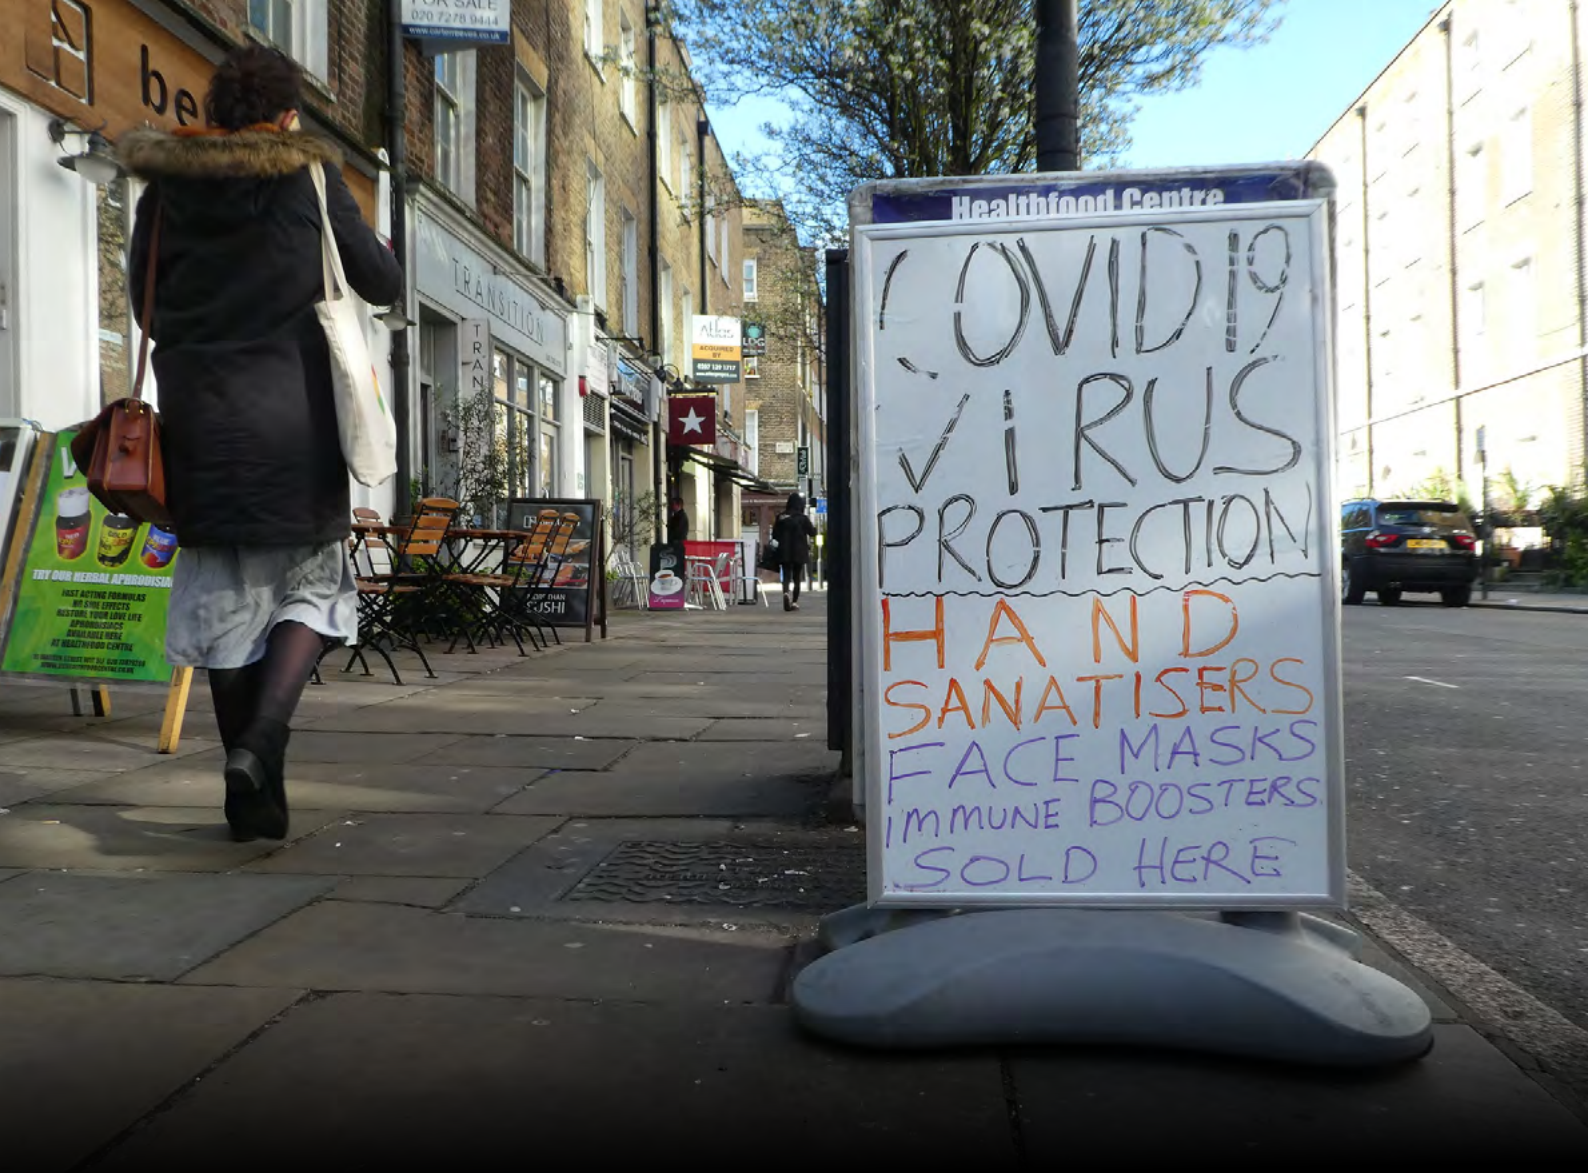 FOR SALE
020 7278 9444
be
TRANSITION
TRAN
ACQUIRED
BY
SUSHI
TRY OUR HERBAL APHRODISIA
FAST ACTING FORMULAS
NO SIDE EFFECTS
RESTORE YOUR LOVE LIFE
APHRODISIACS
AVAILABLE HERE
AT HEALTHFOOD CENTRE
Healthfood Centre
COVID19
ViRUS
PROTECTION
HAND
SANATISERS
FACE MASKS
iMMUNE BOOSTERS
SOLD HERE